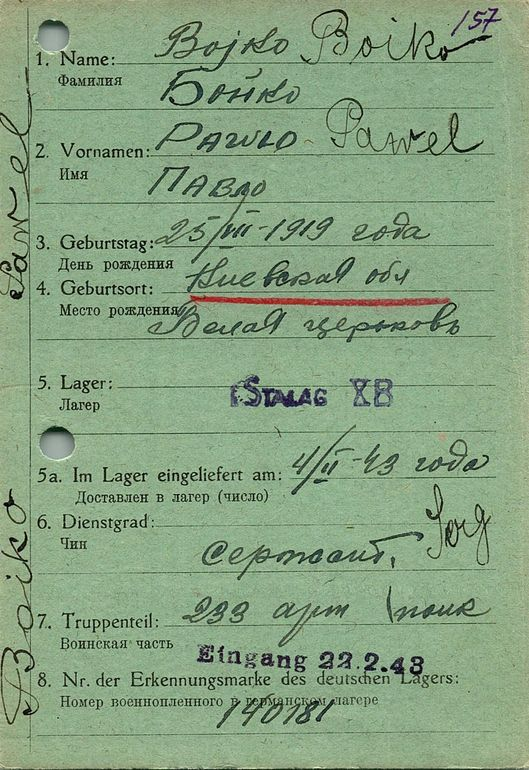 157
1. Name: Bojko Boiko
Фамилия Бойко
2. Vornamen: Pawlo Pawel
Имя Павло
3. Geburtstag: 25/VIII-1919 года
День рождения
4. Geburtsort: Киевская обл
Место рождения Белая церьковь
5. Lager: STALAG XB
Лагер
5a. Im Lager eingeliefert am: 4/II-43 года
Доставлен в лагер (число)
6. Dienstgrad:
Чин Сержант, Serg
7. Truppenteil: 233 арт полк
Воинская часть
Eingang 22.2.43
8. Nr. der Erkennungsmarke des deutschen Lagers:
Номер военнопленного в германском лагере
140181
Boiko Pawel